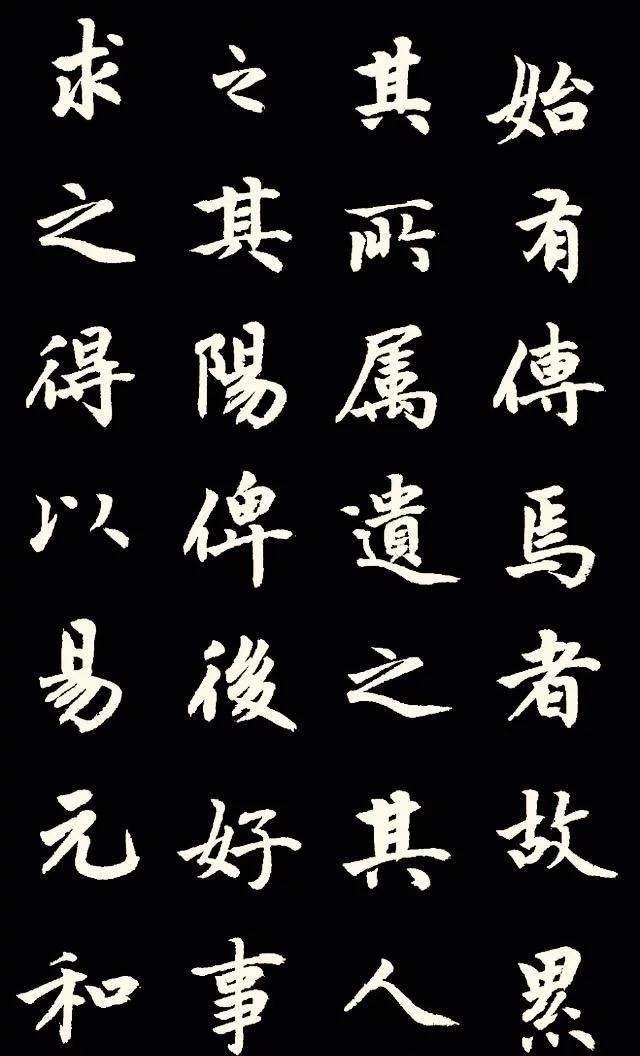 始有傳焉者故累
其所属遺之其人
之其陽俾後好事
求之得以易元和